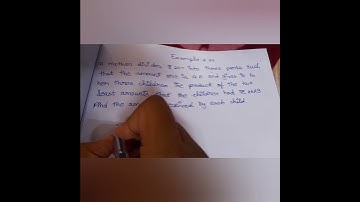 Example
A mother divides ₹ 207 into three parts such
that the amount are in A.P and gives it to
her three children the product of the two
least amounts that the children had ₹ 4623
Find the amount received by each child